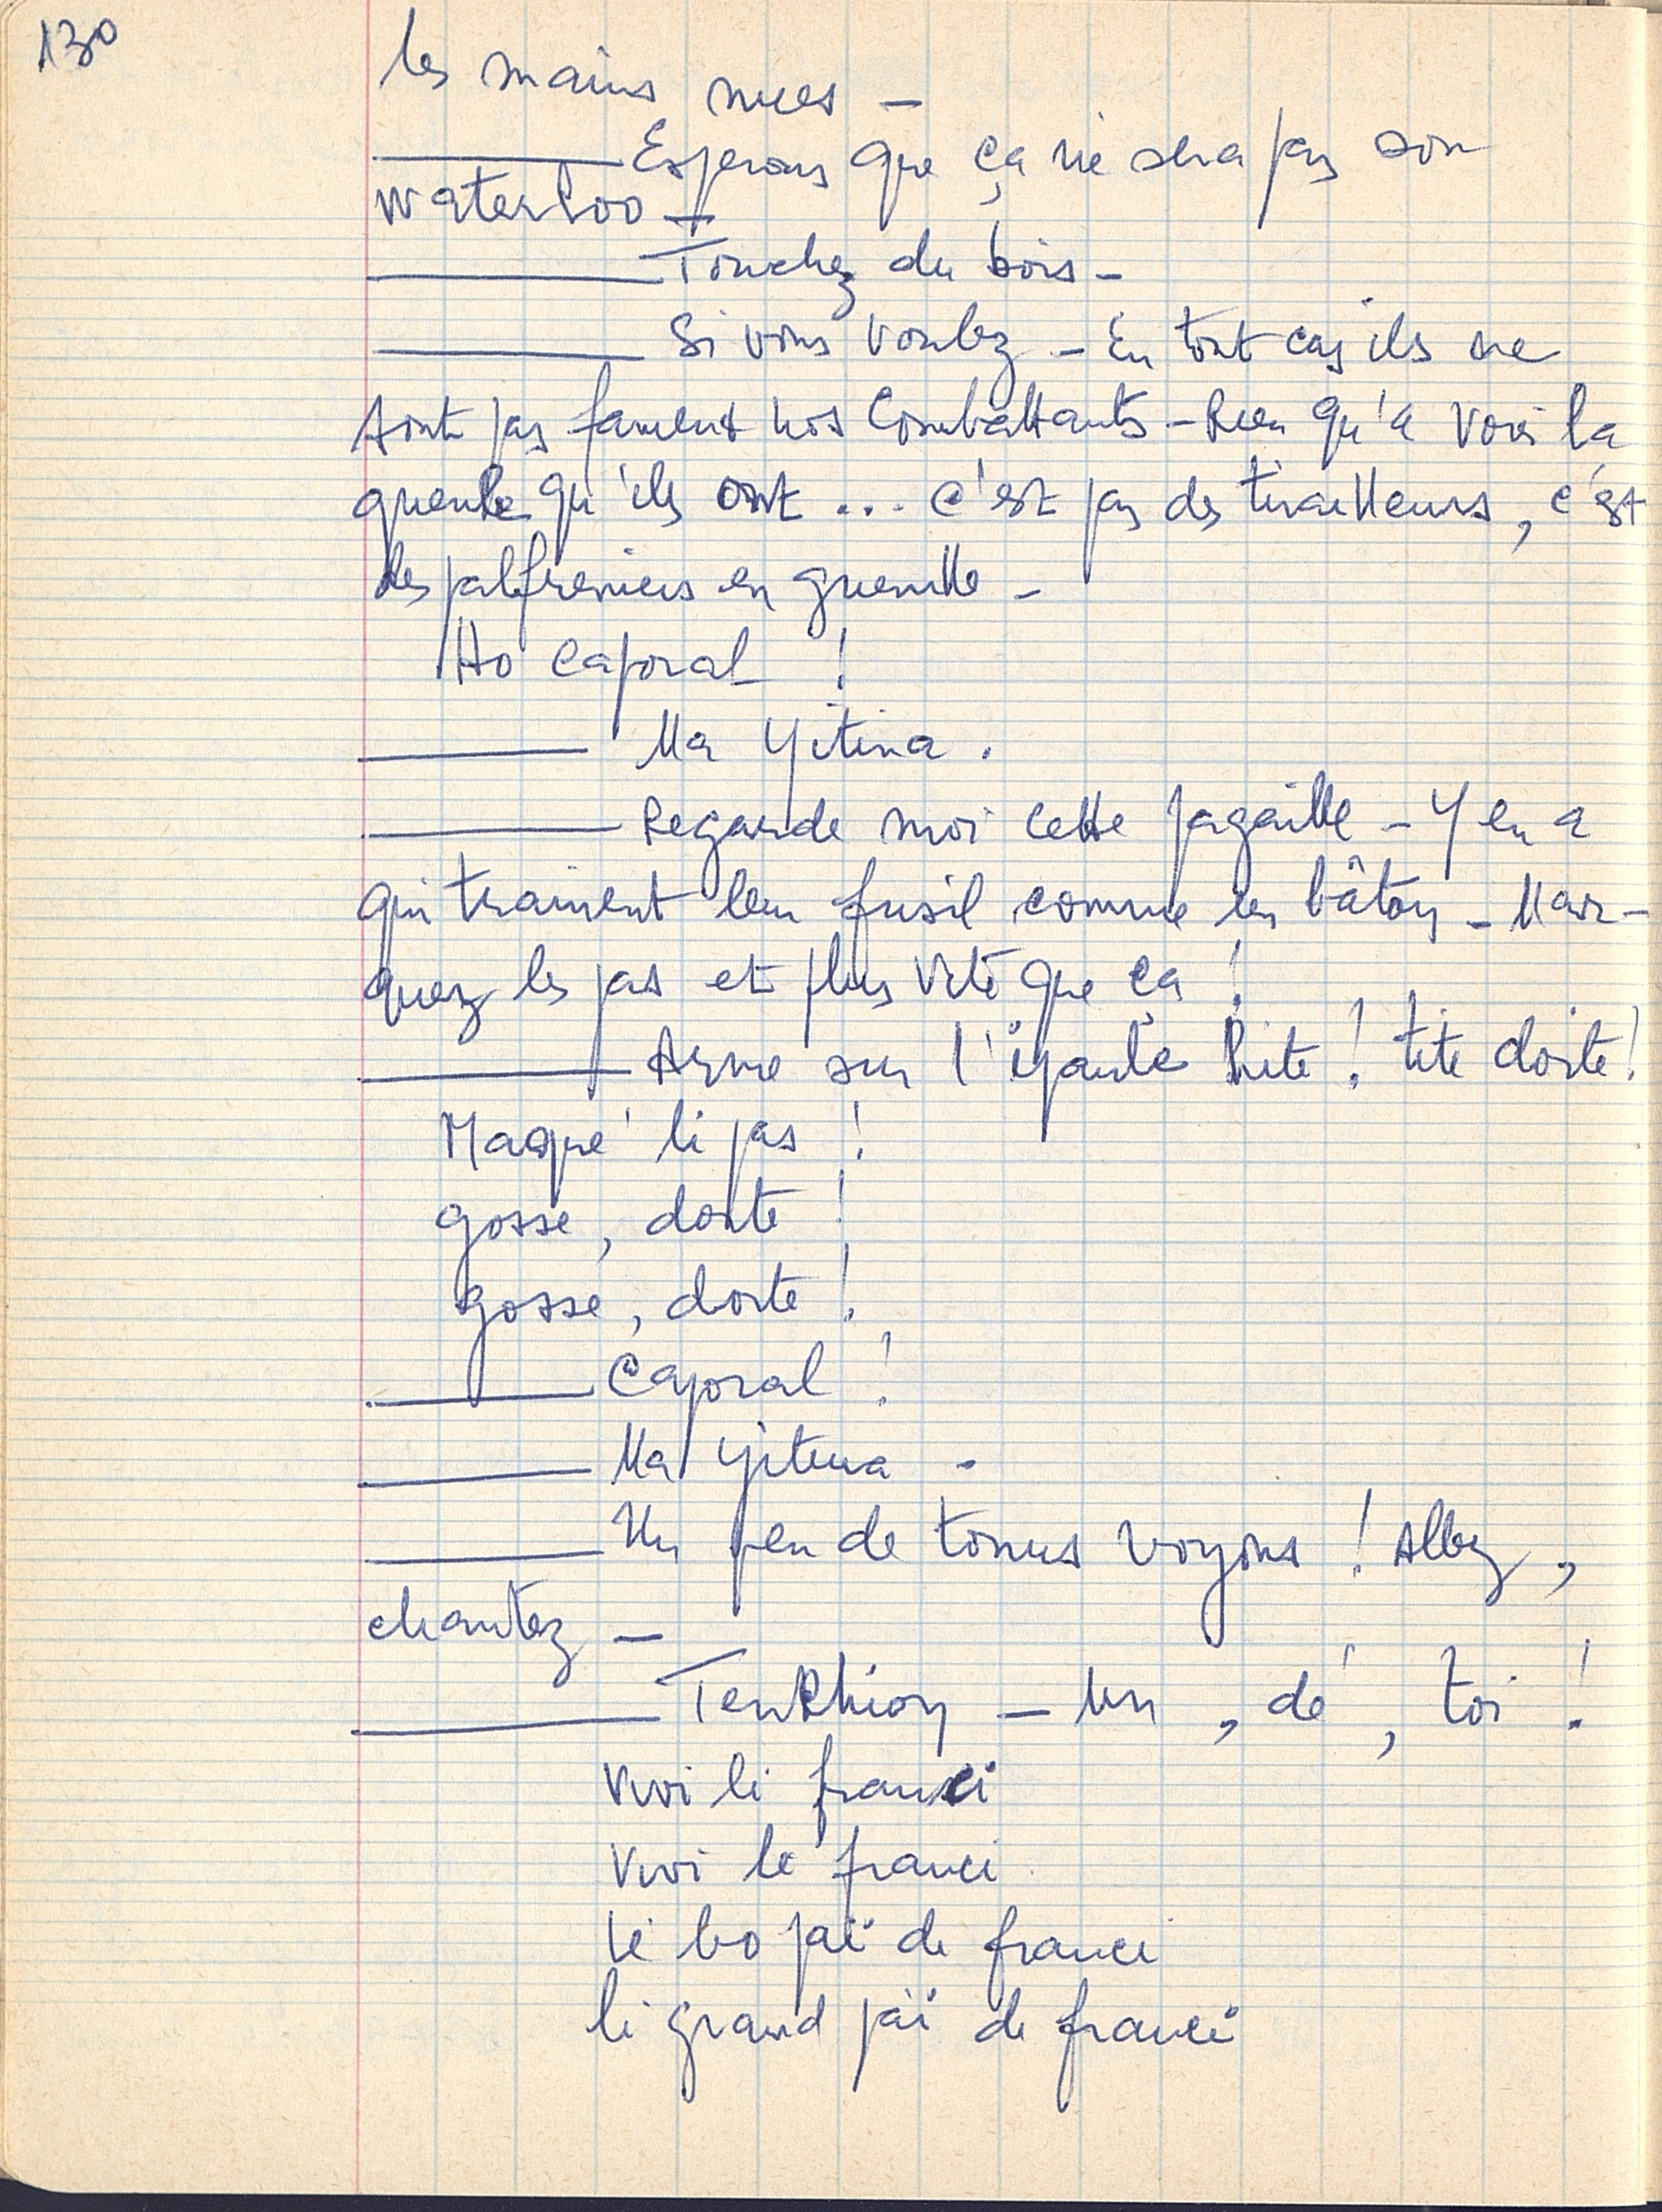 130
les mains nues –
——— Esperons que ça ne sera pas son
Waterloo –
——— Touchez du bois –
——— Si vous voulez – En tout cas ils ne
sont pas fameux nos combattants – Rien qu'à voir la
gueule qu'ils ont ... c'est pas des tirailleurs, c'est
des palfreniers en guenille –
Ho Caporal !
——— Ma Yitina.
——— Regarde moi cette pagaille – Y en a
qui trainent leur fusil comme un bâton – Mar-
quez les pas et plus vite que ça !
——— Arme sur l'épaule
tite doite !
Maqué li pas !
gosse, doite !
gosse, doite !
——— Caporal !
——— Ma Yitina –
——— Un peu de tonus voyons ! Allez,
chantez –
——— – Un, dé, toi !
Vivi li franci
Vivi li franci
Li bo païs de franci
li grand païs de franci